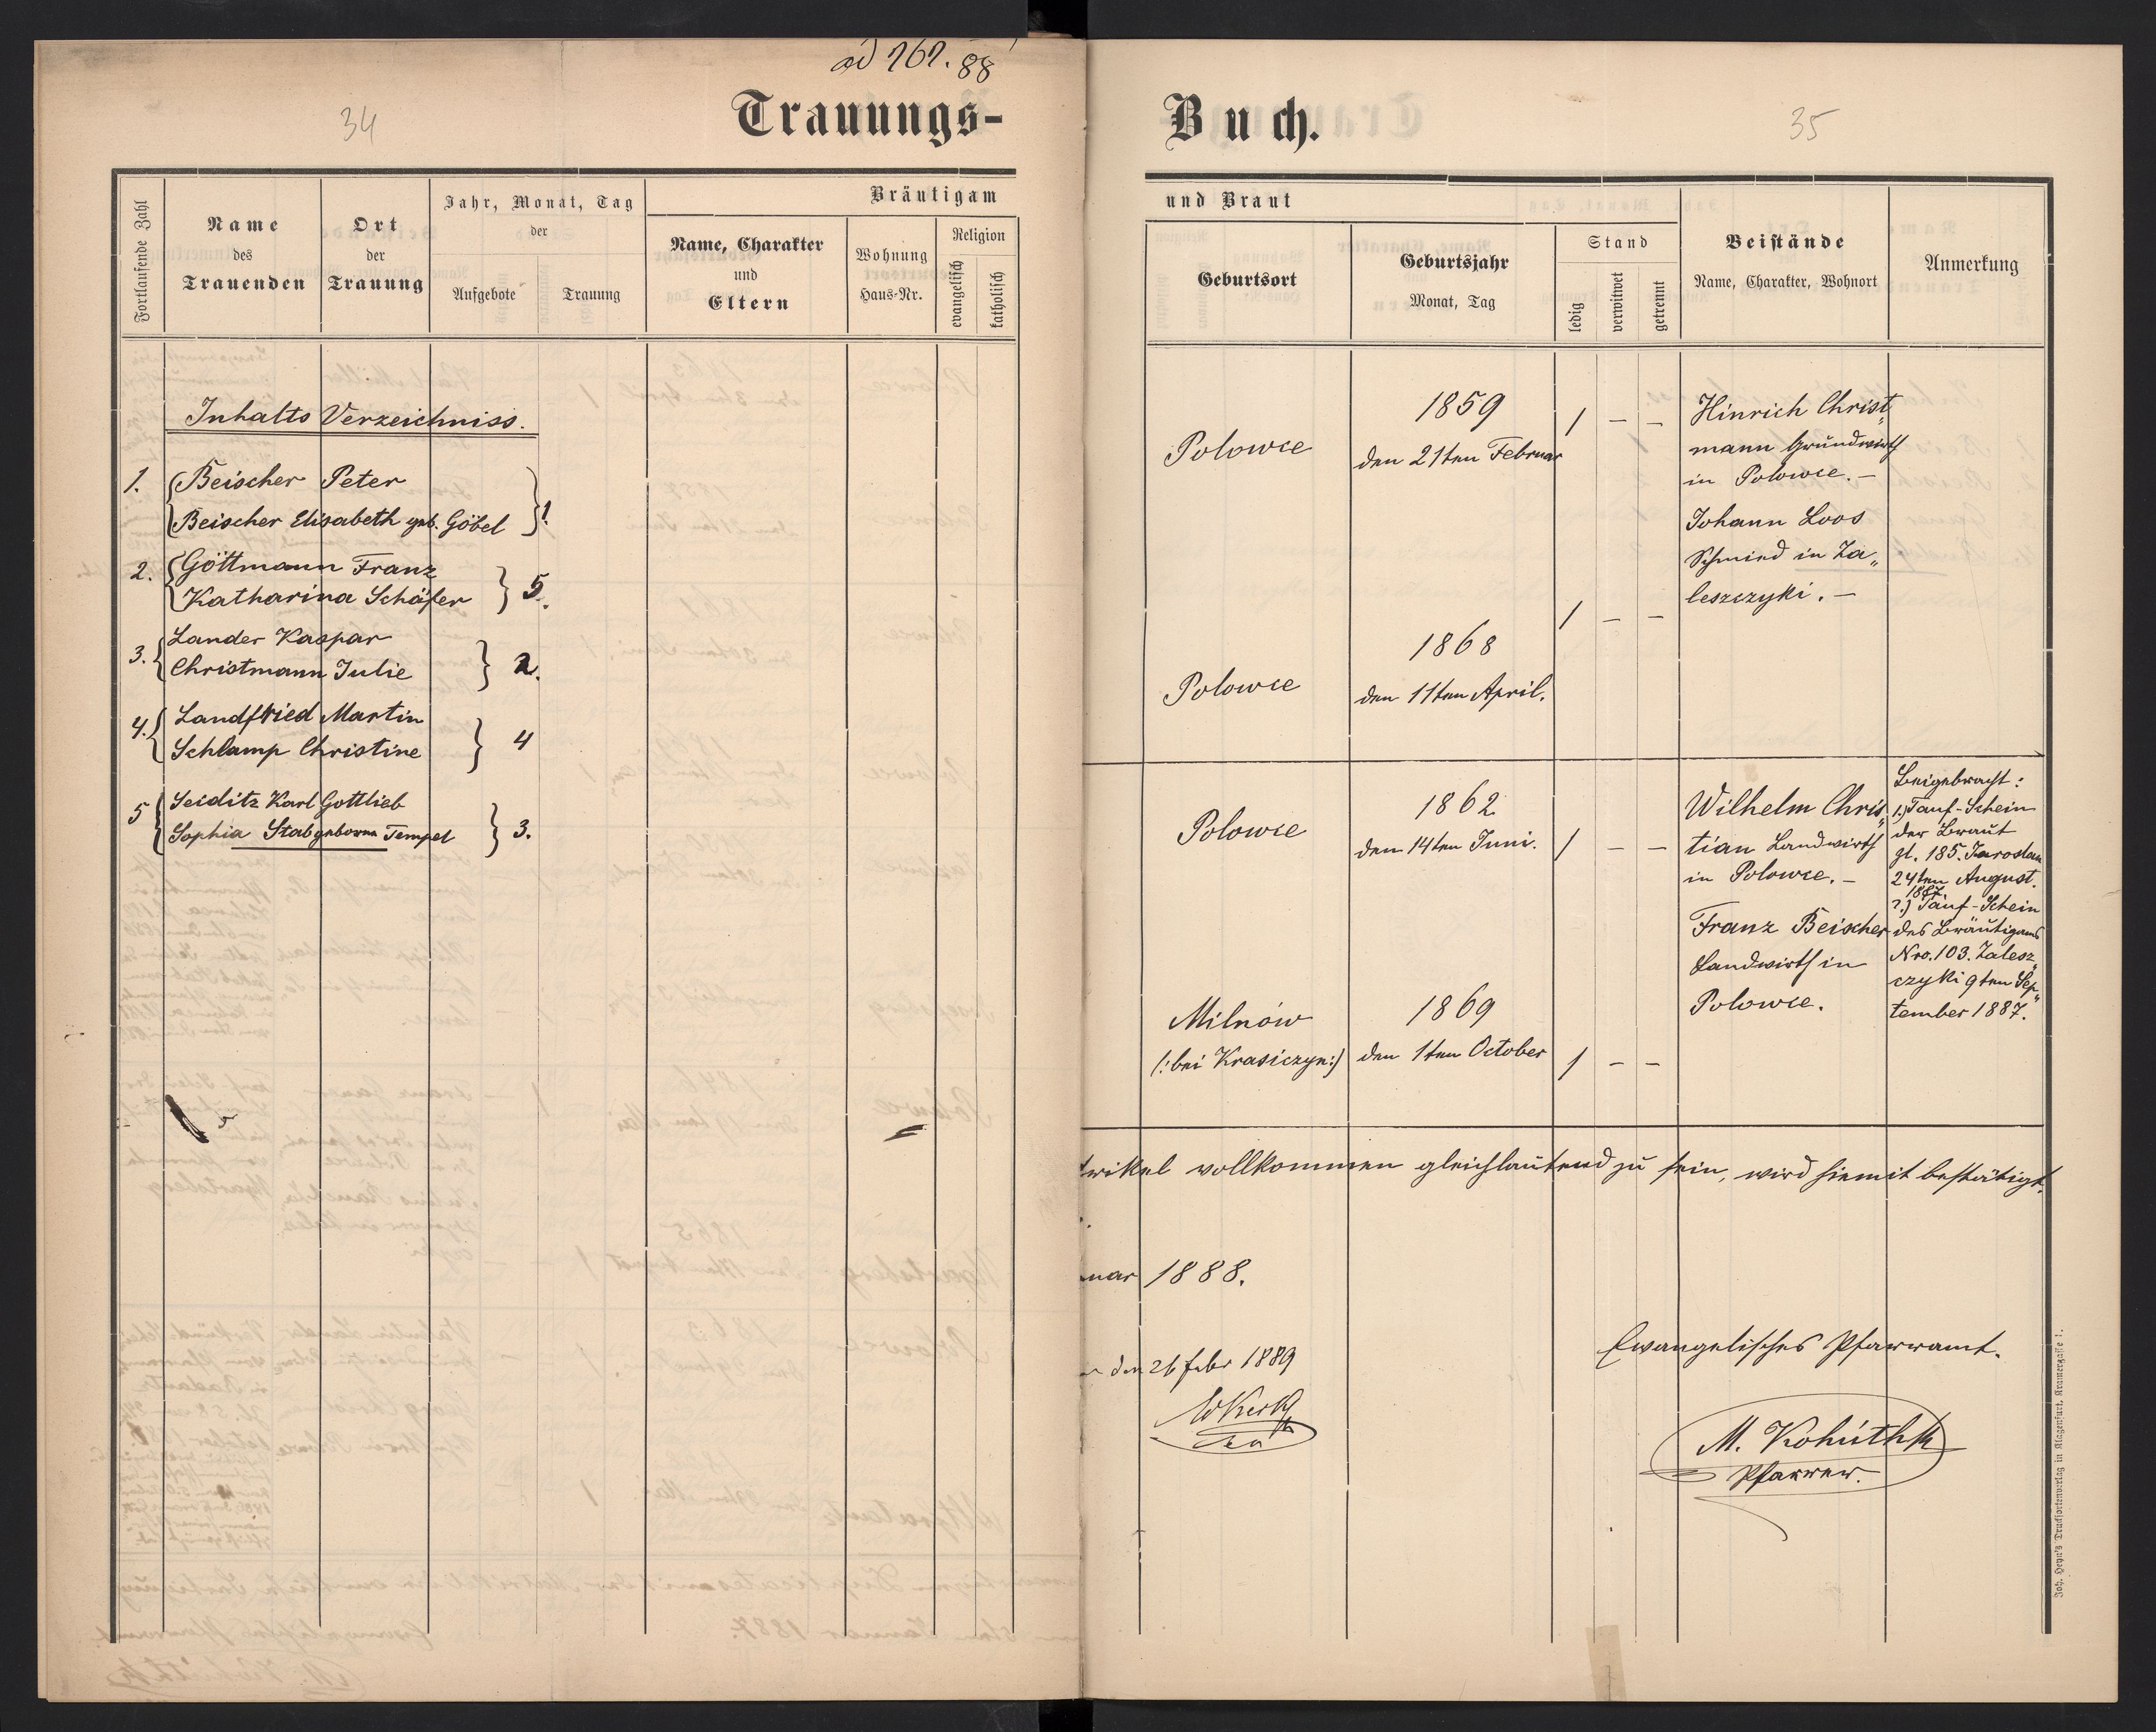 ad 767. 88
34
Trauungs-
Fortlaufende Zahl
Name
des
Trauenden
Ort
der
Trauung
Jahr, Monat, Tag
der
Aufgebote
Trauung
Bräutigam
Name, Charakter
und
Eltern
Wohnung
Haus-Nr.
Religion
evangelisch
katholisch
Inhalts Verzeichniss.
1. Beischer Peter
Beischer Elisabeth geb. Göbel } 1.
2. Göttmann Franz
Katharina Schäfer } 5.
3. Lander Kaspar
Christmann Julie } 2.
4. Landfried Martin
Schlamp Christine } 4
5 Seiditz Karl Gottlieb
Sophia Stab geborne Tempel } 3.
Buch.
35
und Braut
Geburtsort
Geburtsjahr
Monat, Tag
Stand
ledig
verwitwet
getrennt
Beistände
Name, Charakter, Wohnort
Anmerkung
Polowce
1859
den 21ten Februar
1 – –
Hinrich Christ„
mann Grundwirth
in Polowce. –
Johann Loos
Schmied in Za„
leszczyki. –
Polowce
1868
den 11ten April.
1 – –
Polowce
1862
den 14ten Juni.
1 – –
Wilhelm Chris„
tian Landwirth
in Polowce. –
Franz Beischer
Landwirth in
Polowce.
Beigebracht:
1.) Tauf-Schein
der Braut
gl. 185. Jaroslau
24ten August.
1887.
2.) Tauf-Schein
des Bräutigams
Nro. 103. Zalesz„
czyki 9ten Sep„
tember 1887.
Milnów
(: bei Krasiczyn :)
1869
den 1ten October
1 – –
trikel vollkommen gleichlautend zu sein, wird hiemit bestätigt.
nar 1888.
den 26 febr 1889
Evangelisches Pfarramt.
M. Kohúth
Pfarrer.
Joh. Heyn's Drucksortenverlag in Klagenfurt, Kramergasse 1.